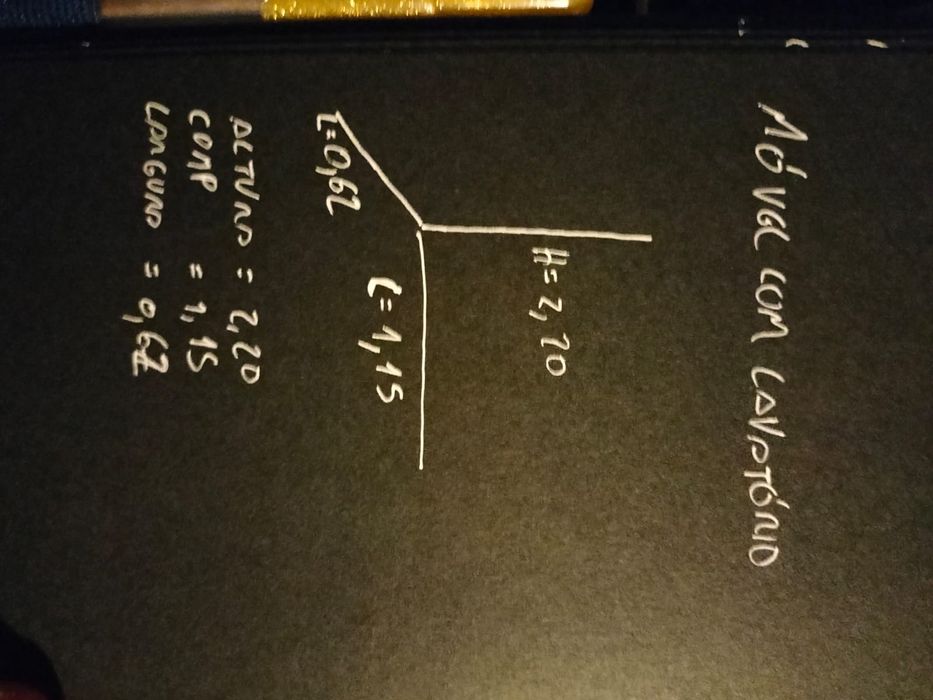 MÓVEL COM LAVATÓRIO
H=2,20
C=1,15
L=0,62
ALTURA = 2,20
COMP = 1,15
LARGURA = 0,62